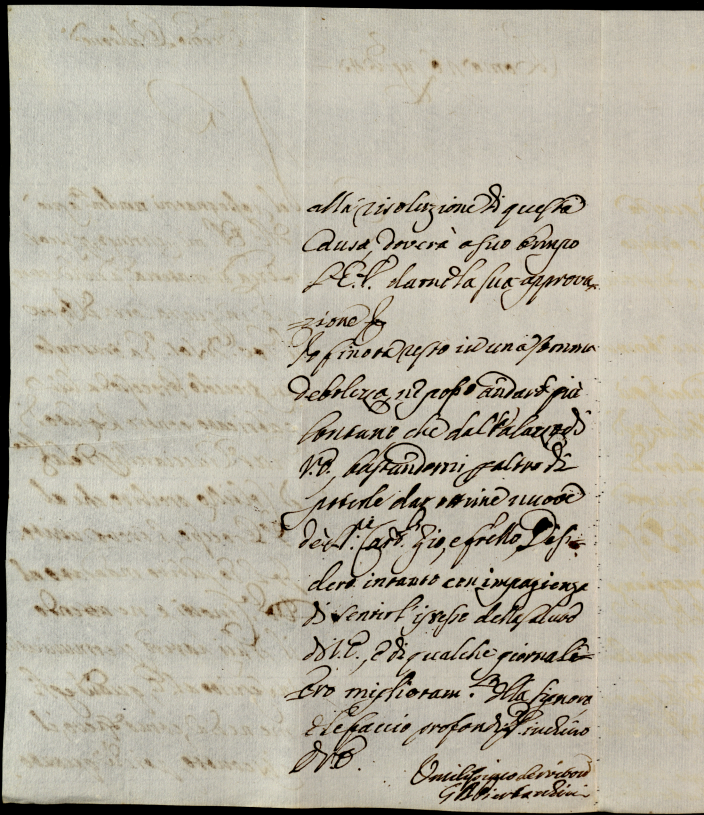 alla risoluzione di questa
Causa, doverà a suo tempo
l'E.V. darne la sua approva-
zione
Io finora resto in una somma
debolezza, nè posso andare più
lontano che dal Palazzo di
V.E. bastandomi per altro di
poterle dar ottime nuove
de Card. Zio, e fratello, Desi-
dero intanto con impazienza
di sentir l'istesse della salute
di V.E., e di qualche giornali-
ero miglioram.to della Signora
e le faccio profondiss.o inchino
di V.E.
Umilissimo servitore